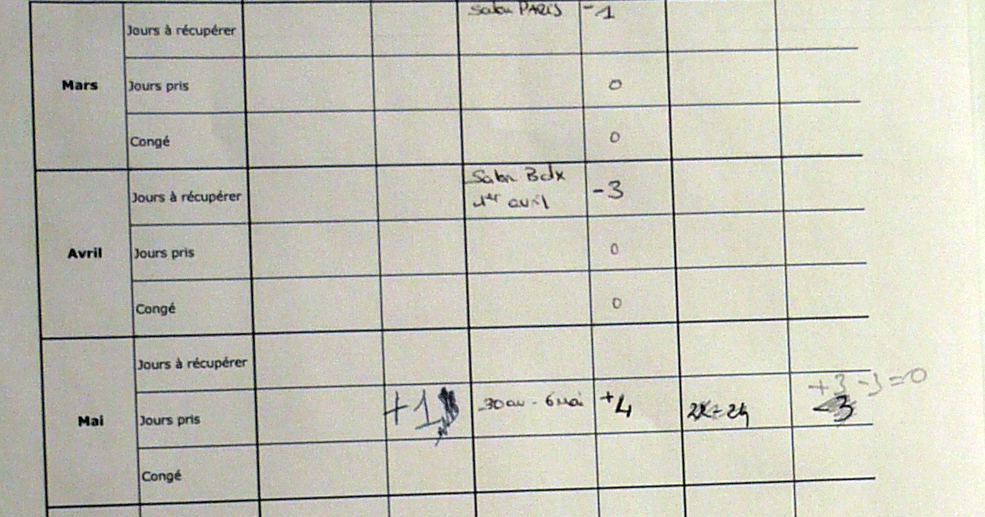 Salon PARIS -1
Jours à récupérer
Mars
Jours pris
0
Congé
0
Salon Bdx
-3
Jours à récupérer
1er avril
Avril
Jours pris
0
Congé
0
Jours à récupérer
+3 -3=0
Mai
Jours pris
+1
30 av - 6 Mai
+4
Congé